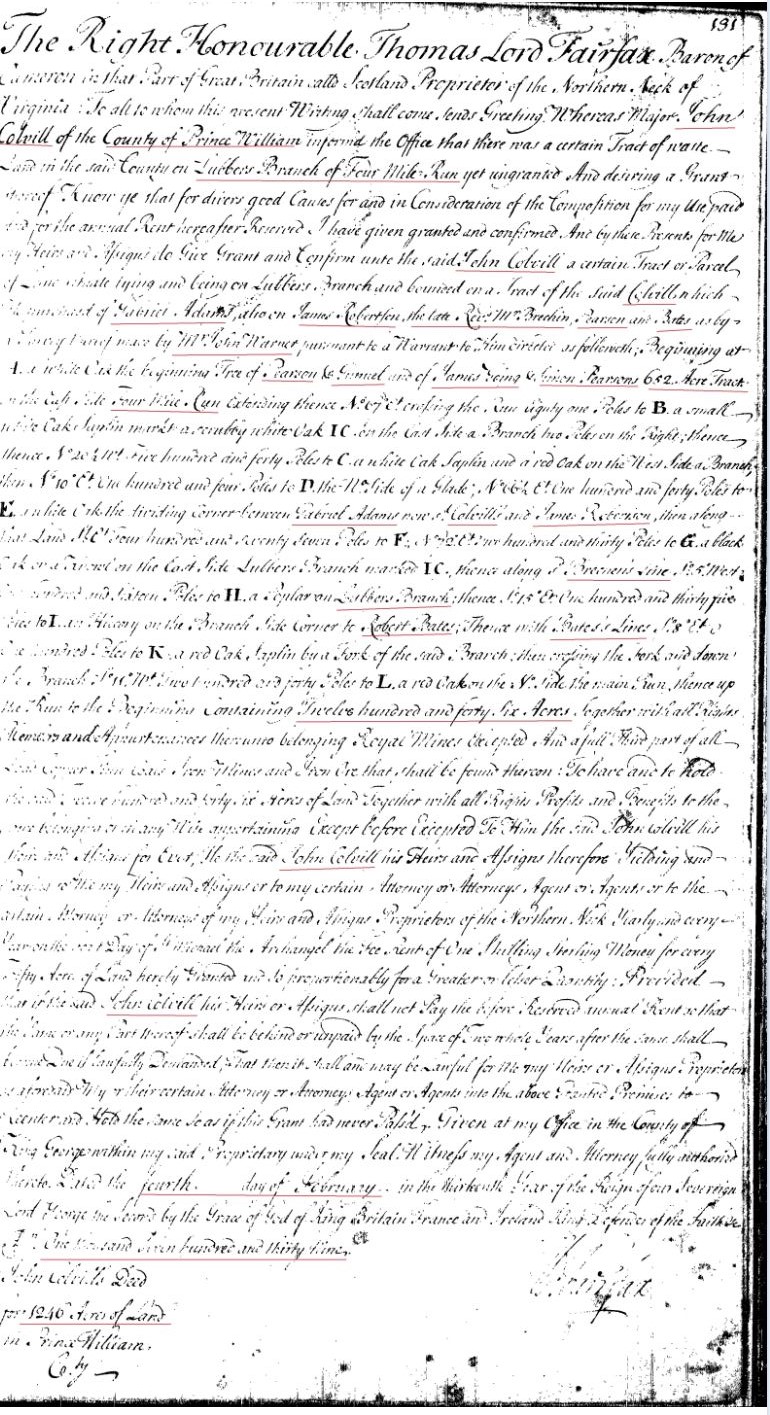 131
The Right Honourable Thomas Lord Fairfax Baron of
Cameron in that Part of Great Britain calld Scotland Proprietor of the Northern Neck of
Virginia: To all to whom this present Writing shall come sends Greeting Whereas Major John
Colvill of the County of Prince William informd the Office that there was a certain Tract of waste
Land in the said County on Lubbers Branch of Four Mile Run yet ungranted And desiring a Grant
thereof Know ye that for divers good Causes for and in Consideration of the Composition for my Use paid
and for the annual Rent hereafter Reserved I have given granted and confirmed And by these Presents for Me
my Heirs and Assigns do Give Grant and Confirm unto the said John Colvill a certain Tract or Parcel
of Land situate lying and being on Lubbers Branch and bounded on a Tract of the said Colvill which
he purchased of Gabriel Adams, also on James Robertson, the late Revd Mr. Brechin, Pearson and Bates as by
a Survey thereof made by Mr John Warner pursuant to a Warrant to Him directed as followeth, Beginning at
A. a white Oak the beginning Tree of Pearson & and of James & Simon Pearsons 652 Acre Tract
on the East Side Four Mile Run Extending thence No 67 Et crossing the Run Eighty one Poles to B. a small
white Oak Saplin markt a scrubby white Oak IC on the East Side a Branch two Poles on the Right; thence
thence No 20½ Wt Five hundred and forty Poles to C. a white Oak Saplin and a red Oak on the West Side a Branch,
then No 10 Et One hundred and four Poles to D. the No Side of a Glade; No 66½ Et One hundred and forty Poles to
E. a white Oak the dividing Corner between Gabriel Adams now sd Colvills and James Robertson, then along
that Land Four hundred and seventy Seven Poles to F; Two hundred and thirty Poles to G. a black
Oak on a Knowl on the East Side Lubbers Branch marked IC, thence along Brechens Line So 5 West
hundred and Sixteen Poles to H. a Poplar on Lubbers Branch; thence So 15 Et One hundred and thirty five
Poles to I. an Hiccory on the Branch Side Corner to Robert Bates; Thence with Bates's Lines So 8 Et
One hundred Poles to K. a red Oak Saplin by a Fork of the said Branch; then crossing the Fork and down
the Branch Two hundred and forty Poles to L. a red Oak on the No Side the main Run, thence up
the Run to the Beginning Containing Twelve hundred and forty Six Acres Together with all Rights
Members and Appurtenances thereunto belonging Royal Mines Excepted And a full Third part of all
Lead Copper Tinn Coals Iron Mines and Iron Ore that shall be found thereon: To have and to hold
the said Twelve hundred and forty six Acres of Land Together with all Rights Profits and Benefits to the
same belonging or in any Wise appertaining Except before Excepted To Him the said John Colvill his
Heirs and Assigns for Ever, He the said John Colvill his Heirs and Assigns therefore Yielding and
Paying to Me my Heirs and Assigns or to my certain Attorney or Attorneys Agent or Agents or to the
certain Attorney or Attorneys of my Heirs and Assigns Proprietors of the Northern Neck Yearly and every
Year on the Feast Day of St Michael the Archangel the Fee Rent of One Shilling Sterling Money for every
Fifty Acres of Land hereby Granted and so proportionably for a Greater or lesser Quantity: Provided
that if the said John Colvill his Heirs or Assigns shall not Pay the before Reserved annual Rent so that
the same or any Part thereof shall be behind or unpaid by the Space of Two whole Years after the same shall
become Due if Lawfully Demanded, That then it shall and may be Lawful for Me my Heirs or Assigns Proprietors
as aforesaid My or their certain Attorney or Attorneys Agent or Agents into the above Granted Premises to
reenter and Hold the same so as if this Grant had never Passd, Given at my Office in the County of
King George within my said Proprietary under my Seal. Witness my Agent and Attorney fully authorized
thereto Dated the fourth day of February in the thirteenth Year of the Reign of our Sovereign
Lord George the Second by the Grace of God of King Britain France and Ireland King Defender of the Faith &c
One thousand Seven hundred and thirty Nine
Fairfax
John Colvills Deed
for 1246 Acres of Land
in Prince William
Coty